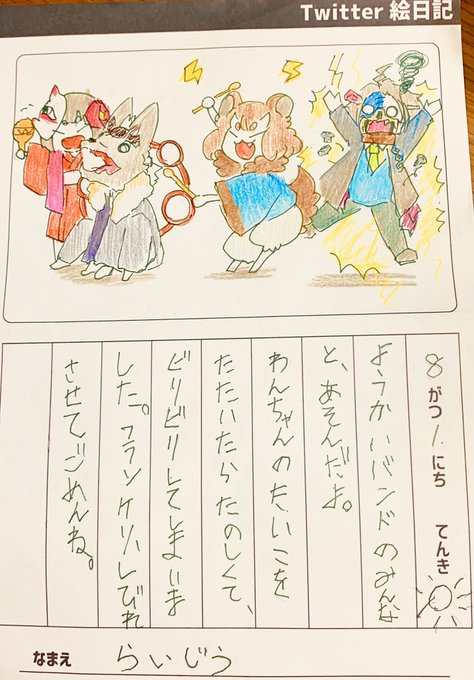 Twitter 絵日記
8 がつ 1 にち てんき
ようかいバンドのみんな
と、あそんだよ。
わんちゃんのたいこを
たたいたらたのしくて、
ビリビリしてしまいま
した。フランケリハしびれ
させてごめんね。
なまえ らいじう